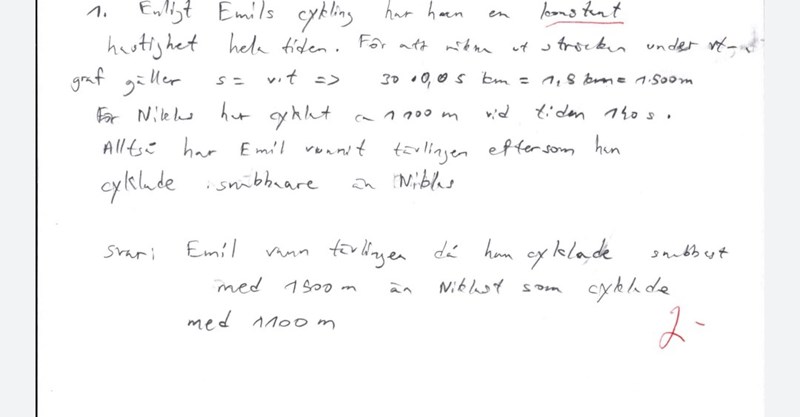 1. Enligt Emils cykling har han en konstant
hastighet hela tiden. För att räkna ut sträckan under vt-
graf gäller s = v.t => 30 . 0,05 km = 1,5 km = 1500m
För Niklas har cyklat ca 1100 m vid tiden 140 s.
Alltså har Emil vunnit tävlingen eftersom han
cyklade snabbare än Niklas
Svar: Emil vann tävlingen då han cyklade snabbast
med 1500 m än Niklas som cyklade
med 1100 m
2-